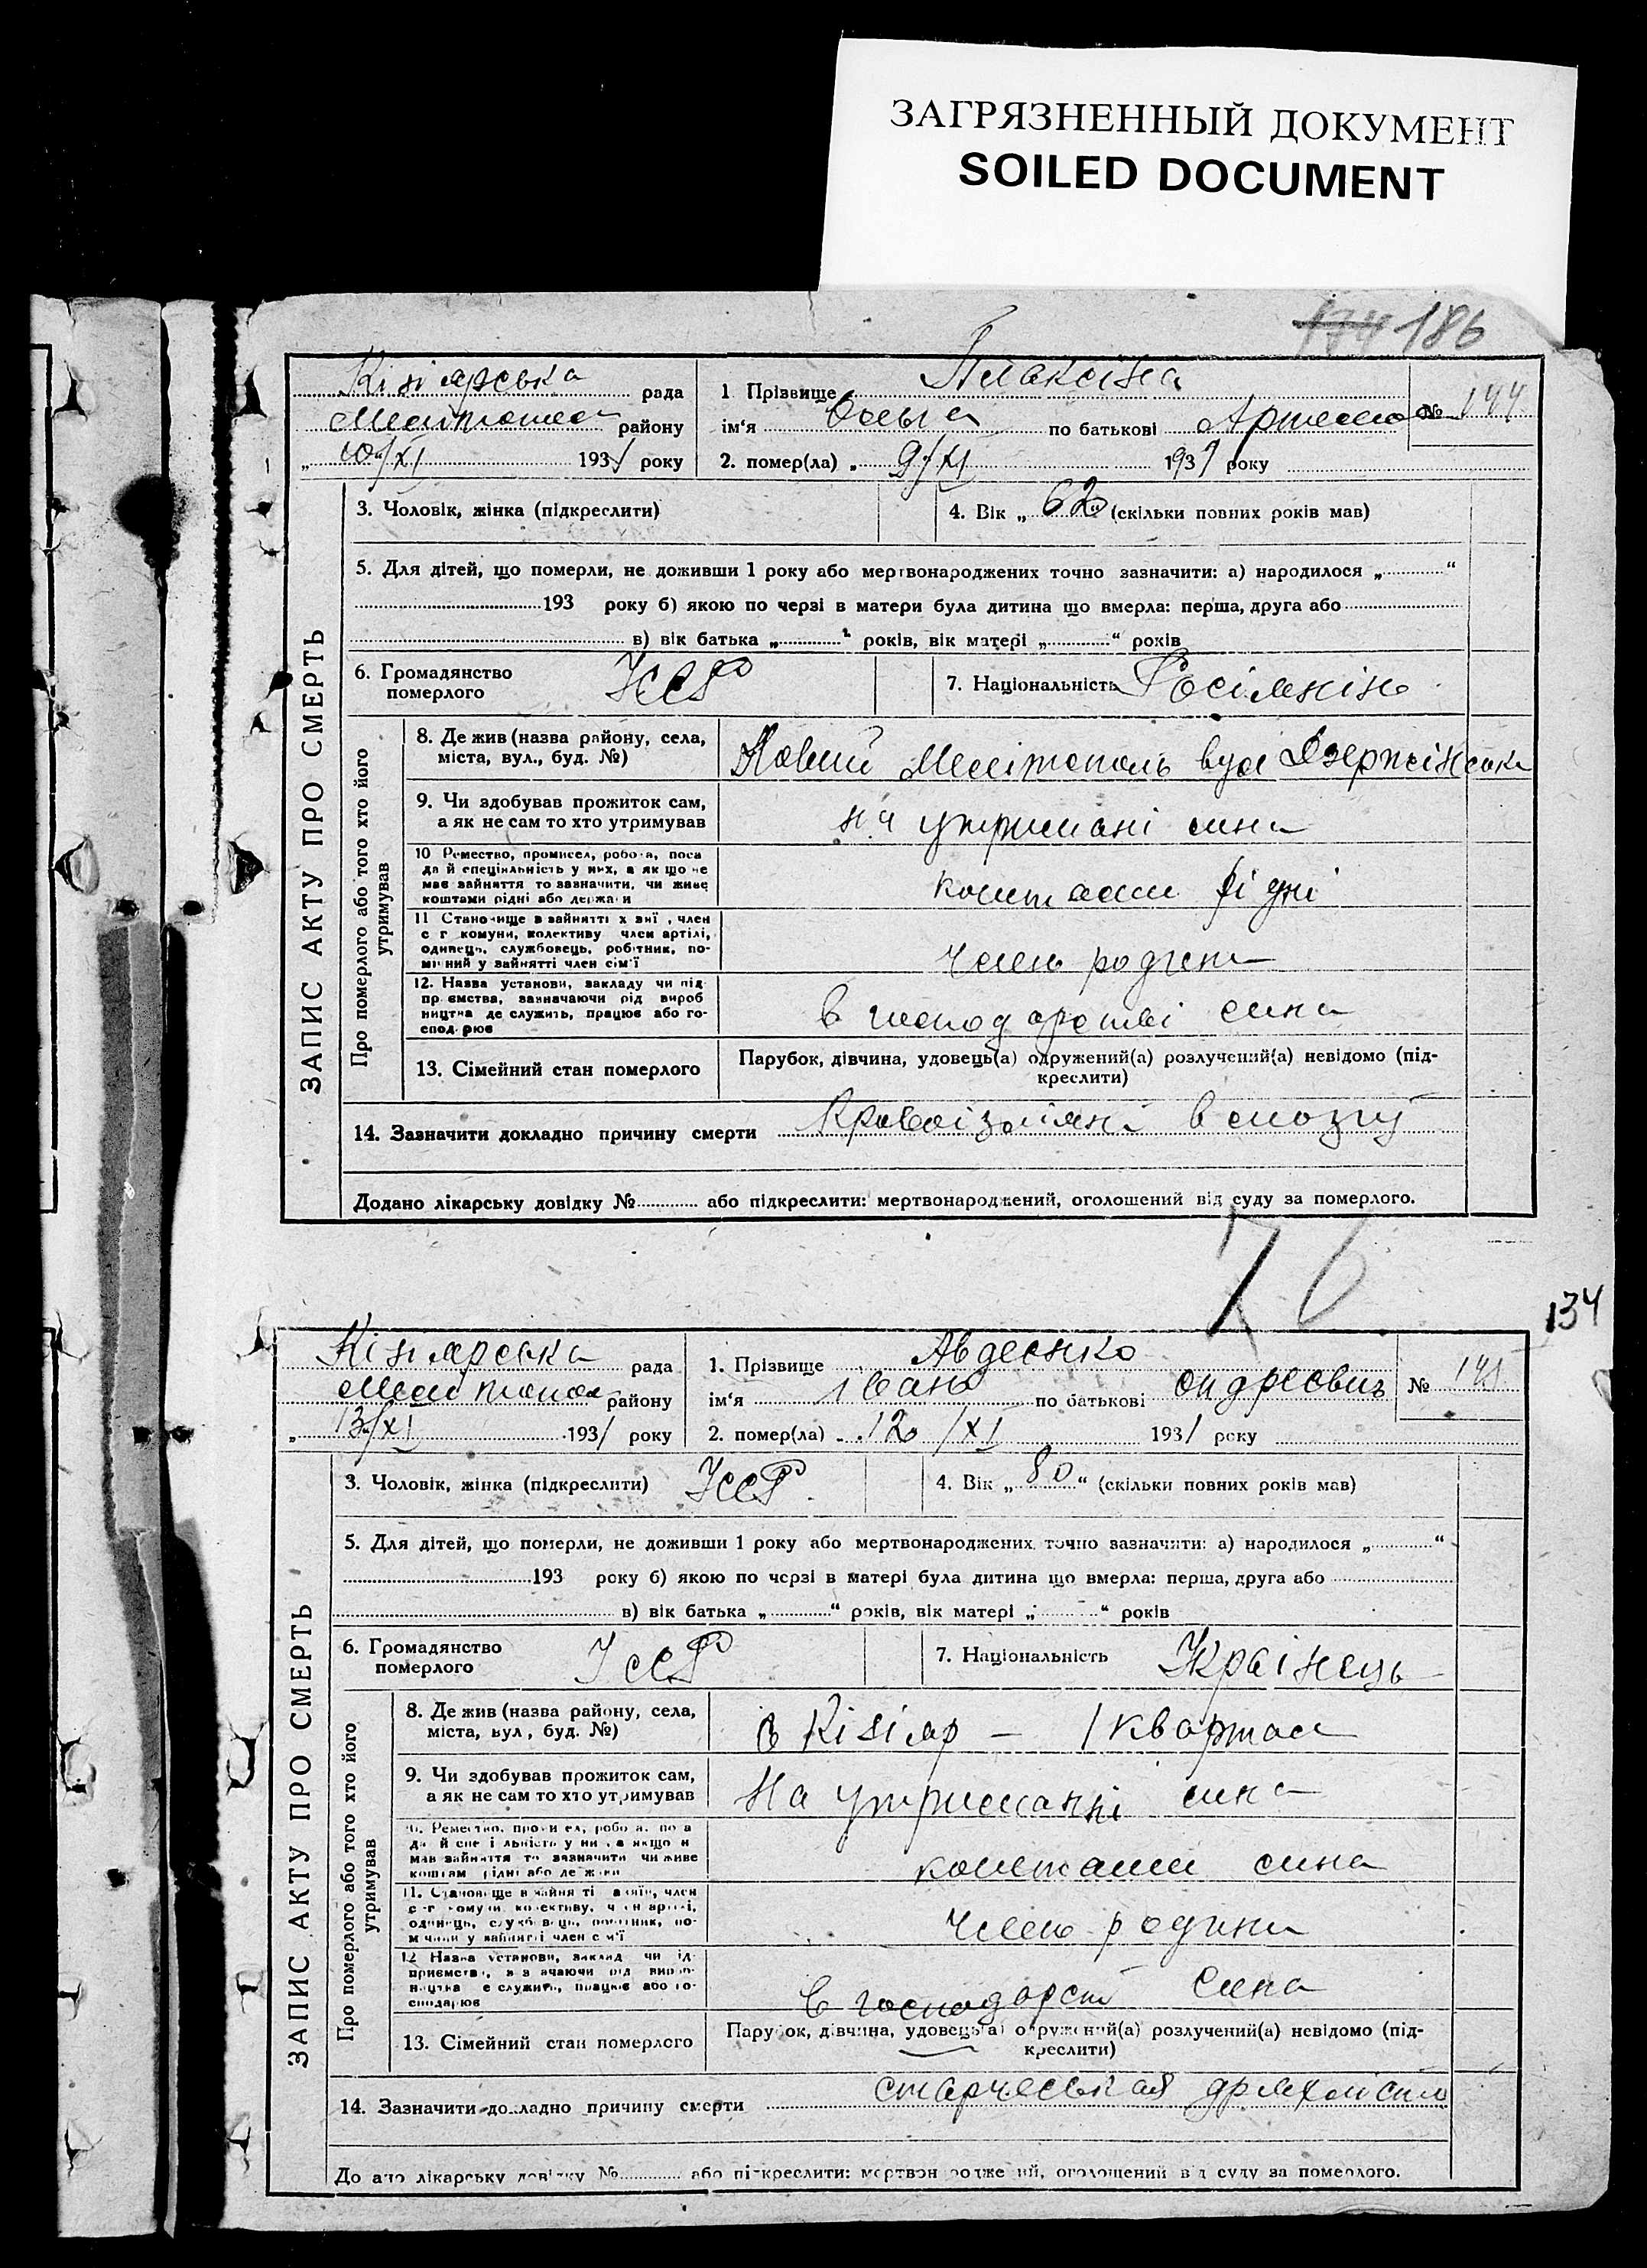 ЗАГРЯЗНЕННЫЙ ДОКУМЕНТ
SOILED DOCUMENT
174 186
Кізіярська рада
1 Прізвище Плаксіна
№ 144
Мелітопол району
ім‘я Ольга по батькові Артемо
„ 10/XI 1931 року
2. помер(ла) „ 9/XI 1931 року
ЗАПИС АКТУ ПРО СМЕРТЬ
3. Чоловік, жінка (підкреслити)
4. Вік „ 62 (скільки повних років мав)
5. Для дітей, що померли, не доживши 1 року або мертвонароджених точно зазначити: а) народилося „ “
193 року б) якою по черзі в матери була дитина що вмерла: перша, друга або
в) вік батька „ “ років, вік матері „ “ років
6. Громадянство померлого УССР
7. Національність Росіянін
Про померлого або того хто його утримував
8. Де жив (назва району, села, міста, вул., буд. №)
Новий Мелітополь вул Дзержінська
9. Чи здобував прожиток сам, а як не сам то хто утримував
на утримані сина
10 Ремество, промисел, робота, поса да й спеціяльність у них, а як що не має зайняття то зазначити, чи живе коштами рідні або держави
коштами рідні
11 Становище в зайнятті х вні , член с г комуни, колективу член артілі, одинець, службовець, робітник, помічний у зайнятті член сім‘ї
член родини
12. Назва установи, закладу чи підпр ємства, зазначаючи рід виробництва де служить, працює або господ рює
в господарстві сина
13. Сімейний стан померлого
Парубок, дівчина, удовець(а) одружений(а) розлучений(а) невідомо (підкреслити)
14. Зазначити докладно причину смерти в мозгу
Додано лікарську довідку № або підкреслити: мертвонароджений, оголошений від суду за померлого.
134
Кізіярська рада
1. Прізвище Авдеєнко
№ 145
Мелітопол району
ім‘я Іван по батькові Ондреєвич
„ 13/XI 1931 року
2. помер(ла) 12 /XI 1931 року
ЗАПИС АКТУ ПРО СМЕРТЬ
3. Чоловік, жінка (підкреслити) УССР
4. Вік „ 80 “ (скільки повних років мав)
5. Для дітей, що померли, не доживши 1 року або мертвонароджених точно зазначити: а) народилося „ “
193 року б) якою по черзі в матері була дитина що вмерла: перша, друга або
в) вік батька „ “ років, вік матері „ “ років
6. Громадянство померлого УССР
7. Національність Украінець
Про померлого або того хто його утримував
8. Де жив (назва району, села, міста, вул, буд. №)
в Кізіяр — 1 квартал
9. Чи здобував прожиток сам, а як не сам то хто утримував
на утриманні сина
коштами сина
член родини
в господарст сина
13. Сімейний стан померлого
Парубок, дівчина, удовець(а) одружений(а) розлучений(а) невідомо (підкреслити)
14. Зазначити докладно причину смерти старческая дряхлость
Додано лікарську довідку № або підкреслити: мертвонароджений, оголошений від суду за померлого.